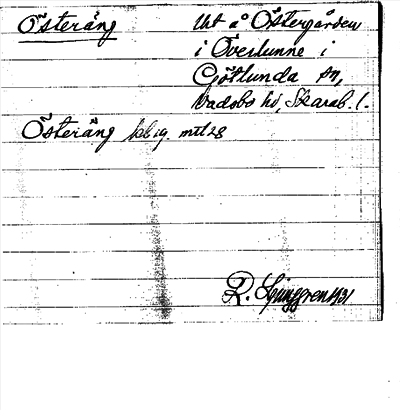 Österäng
Ut å Östergården
i Överlunne i
Götlunda sn,
Vadsbo hd, Skarab. l.
Österäng kbl 19. mtl 28
R. Ljunggren 1931